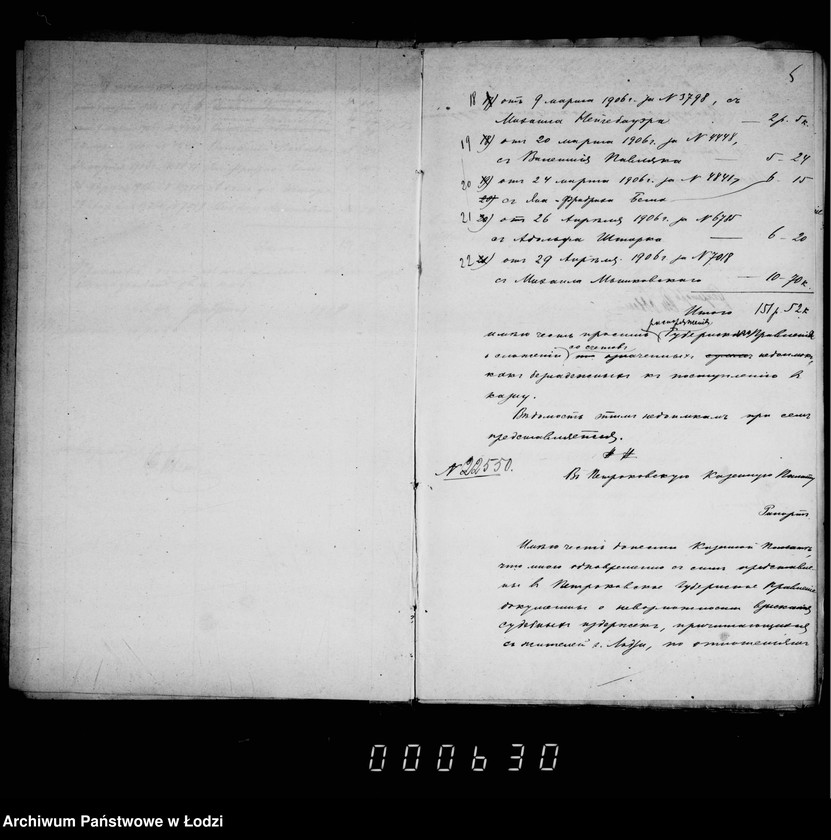 5
18 17) отъ 9 марта 1906 г. за N 3798, съ
Михаила Нейгебауэра — 2 р. 5 к.
19 18) отъ 20 марта 1906 г. за N 4448,
съ Валентія Павляка — 5 - 24
20 19) отъ 24 марта 1906 г. за N 4841, 6 - 15
20) съ Яна-Фридриха Бема
21 20) отъ 26 Апрѣля 1906 г. за N
съ Адольфа Штарка — 6 - 20
22 21) отъ 29 Апрѣля 1906 г. за N 7018
съ Михаила Мышковскаго — 10 - 70 к.
Итого 151 р. 52 к
распоряженія
имѣю честь просить Губернское Правленіе
со счетовъ
о сложеніи означенныхъ недоимокъ,
какъ безнадежныхъ къ поступленію въ
казну.
Вѣдомость этимъ недоимкамъ при семъ
представляется.
N 22550.
Въ Петроковскую Казенную Палату
Рапортъ.
Имѣю честь донести Казенной Палатѣ,
что мною одновременно съ симъ представле-
ны въ Петроковское Губернское Правленіе
документы о невозможности взысканія
судебныхъ издержекъ, причитающихся
съ жителей г. Лодзи, по отношеніямъ
000630
Archiwum Państwowe w Łodzi